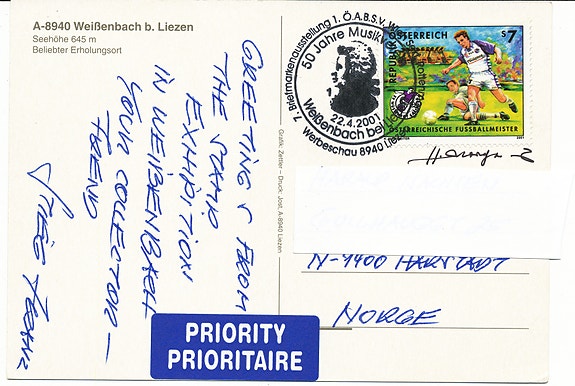 A-8940 Weißenbach b. Liezen
Seehöhe 645 m
Beliebter Erholungsort
GREETINGS FROM
THE STAMP
EXHIBITION
IN WEIßENBACH
YOUR COLLECTOR-
FRIEND
7. Briefmarkenausstellung 1. Ö.A.B.S.V.
50 Jahre Musik
22.4.2001
Weißenbach bei
Werbeschau 8940 Liezen
REPUBLIK ÖSTERREICH
S 7
ÖSTERREICHISCHE FUSSBALLMEISTER
2001
Grafik: Zettler – Druck: Jost, A-8940 Liezen
N-9400 HARSTADT
NORGE
PRIORITY
PRIORITAIRE